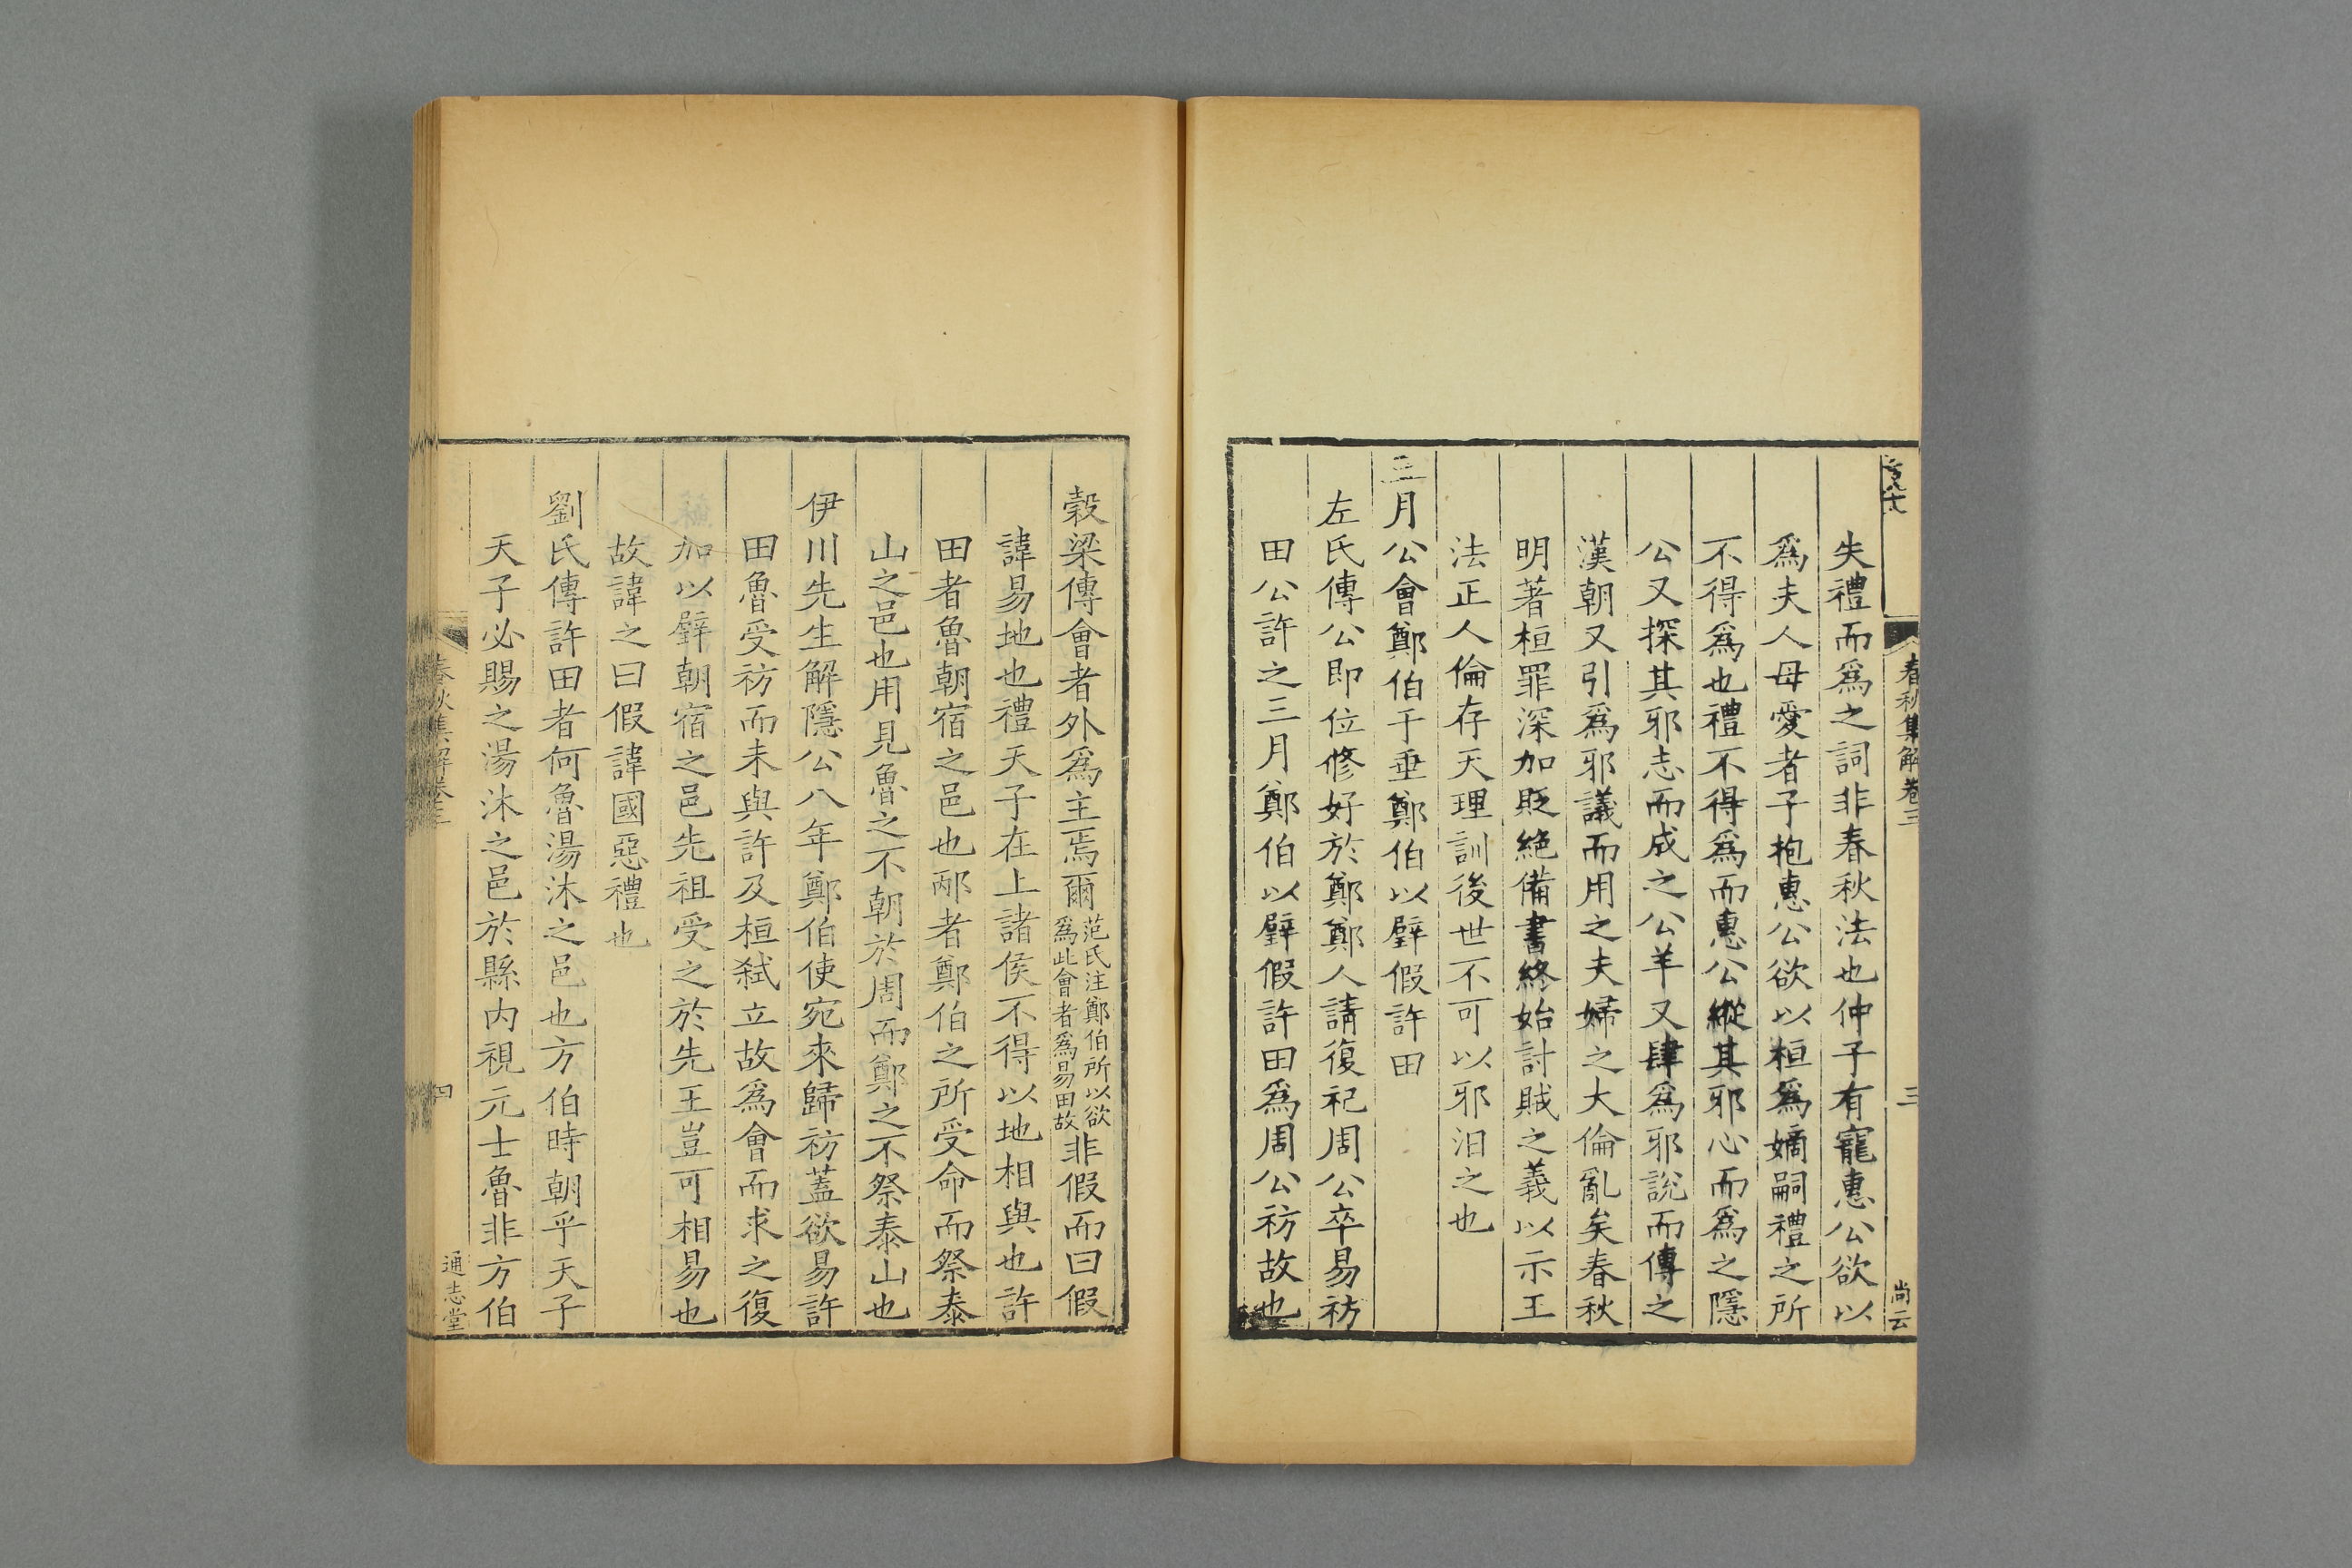 春秋集解卷三
三
尚云
失禮而爲之詞非春秋法也仲子有寵惠公欲以
爲夫人母愛者子抱惠公欲以桓爲嫡嗣禮之所
不得爲也禮不得爲而惠公縱其邪心而爲之隱
公又探其邪志而成之公羊又肆爲邪說而傳之
漢朝又引爲邪議而用之夫婦之大倫亂矣春秋
明著桓罪深加貶絕備書終始討賊之義以示王
法正人倫存天理訓後世不可以邪汨之也
三月公會鄭伯于垂鄭伯以璧假許田
左氏傳公即位修好於鄭鄭人請復祀周公卒易祊
田公許之三月鄭伯以璧假許田爲周公祊故也
穀梁傳會者外爲主焉爾范氏注鄭伯所以欲爲此會者爲易田故非假而曰假
諱易地也禮天子在上諸侯不得以地相與也許
田者魯朝宿之邑也邴者鄭伯之所受命而祭泰
山之邑也用見魯之不朝於周而鄭之不祭泰山也
伊川先生解隱公八年鄭伯使宛來歸祊蓋欲易許
田魯受祊而未與許及桓弒立故爲會而求之復
加以璧朝宿之邑先祖受之於先王豈可相易也
故諱之曰假諱國惡禮也
劉氏傳許田者何魯湯沐之邑也方伯時朝乎天子
天子必賜之湯沐之邑於縣內視元士魯非方伯
春秋集解卷三
四
通志堂